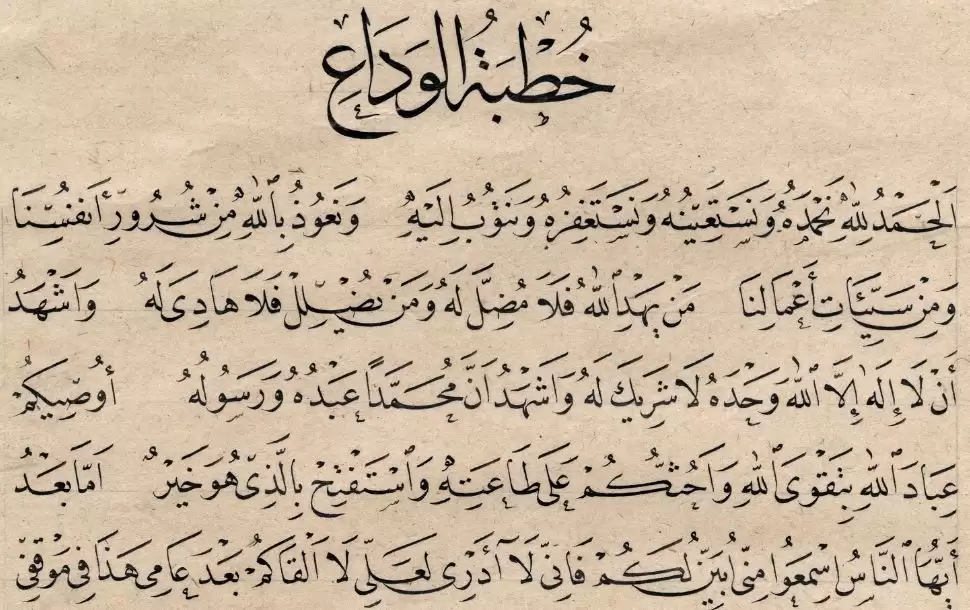 خُطْبَةُ الوَدَاعِ
اَلْحَمْدُ لِلّٰهِ نَحْمَدُهُ وَنَسْتَعِيْنُهُ وَنَسْتَغْفِرُهُ وَنَتُوْبُ اِلَيْهِ وَنَعُوْذُ بِاللّٰهِ مِنْ شُرُوْرِ أَنْفُسِنَا
وَمِنْ سَيِّئَاتِ أَعْمَالِنَا مَنْ يَهْدِ اللّٰهُ فَلَا مُضِلَّ لَهُ وَمَنْ يُضْلِلْ فَلَا هَادِىَ لَهُ وَاَشْهَدُ
أَنْ لَا إِلٰهَ إِلَّا اللّٰهُ وَحْدَهُ لَا شَرِيْكَ لَهُ وَاَشْهَدُ اَنَّ مُحَمَّدًا عَبْدُهُ وَرَسُوْلُهُ أُوْصِيْكُمْ
عِبَادَ اللّٰهِ بِتَقْوَى اللّٰهِ وَاَحُثُّكُمْ عَلَى طَاعَتِهِ وَاَسْتَفْتِحُ بِالَّذِىْ هُوَ خَيْرٌ اَمَّا بَعْدُ
أَيُّهَا النَّاسُ اِسْمَعُوا مِنِّى اُبَيِّنْ لَكُمْ فَاِنِّى لَا أَدْرِى لَعَلِّى لَا اَلْقَاكُمْ بَعْدَ عَامِى هَذَا فِى مَوْقِفِى